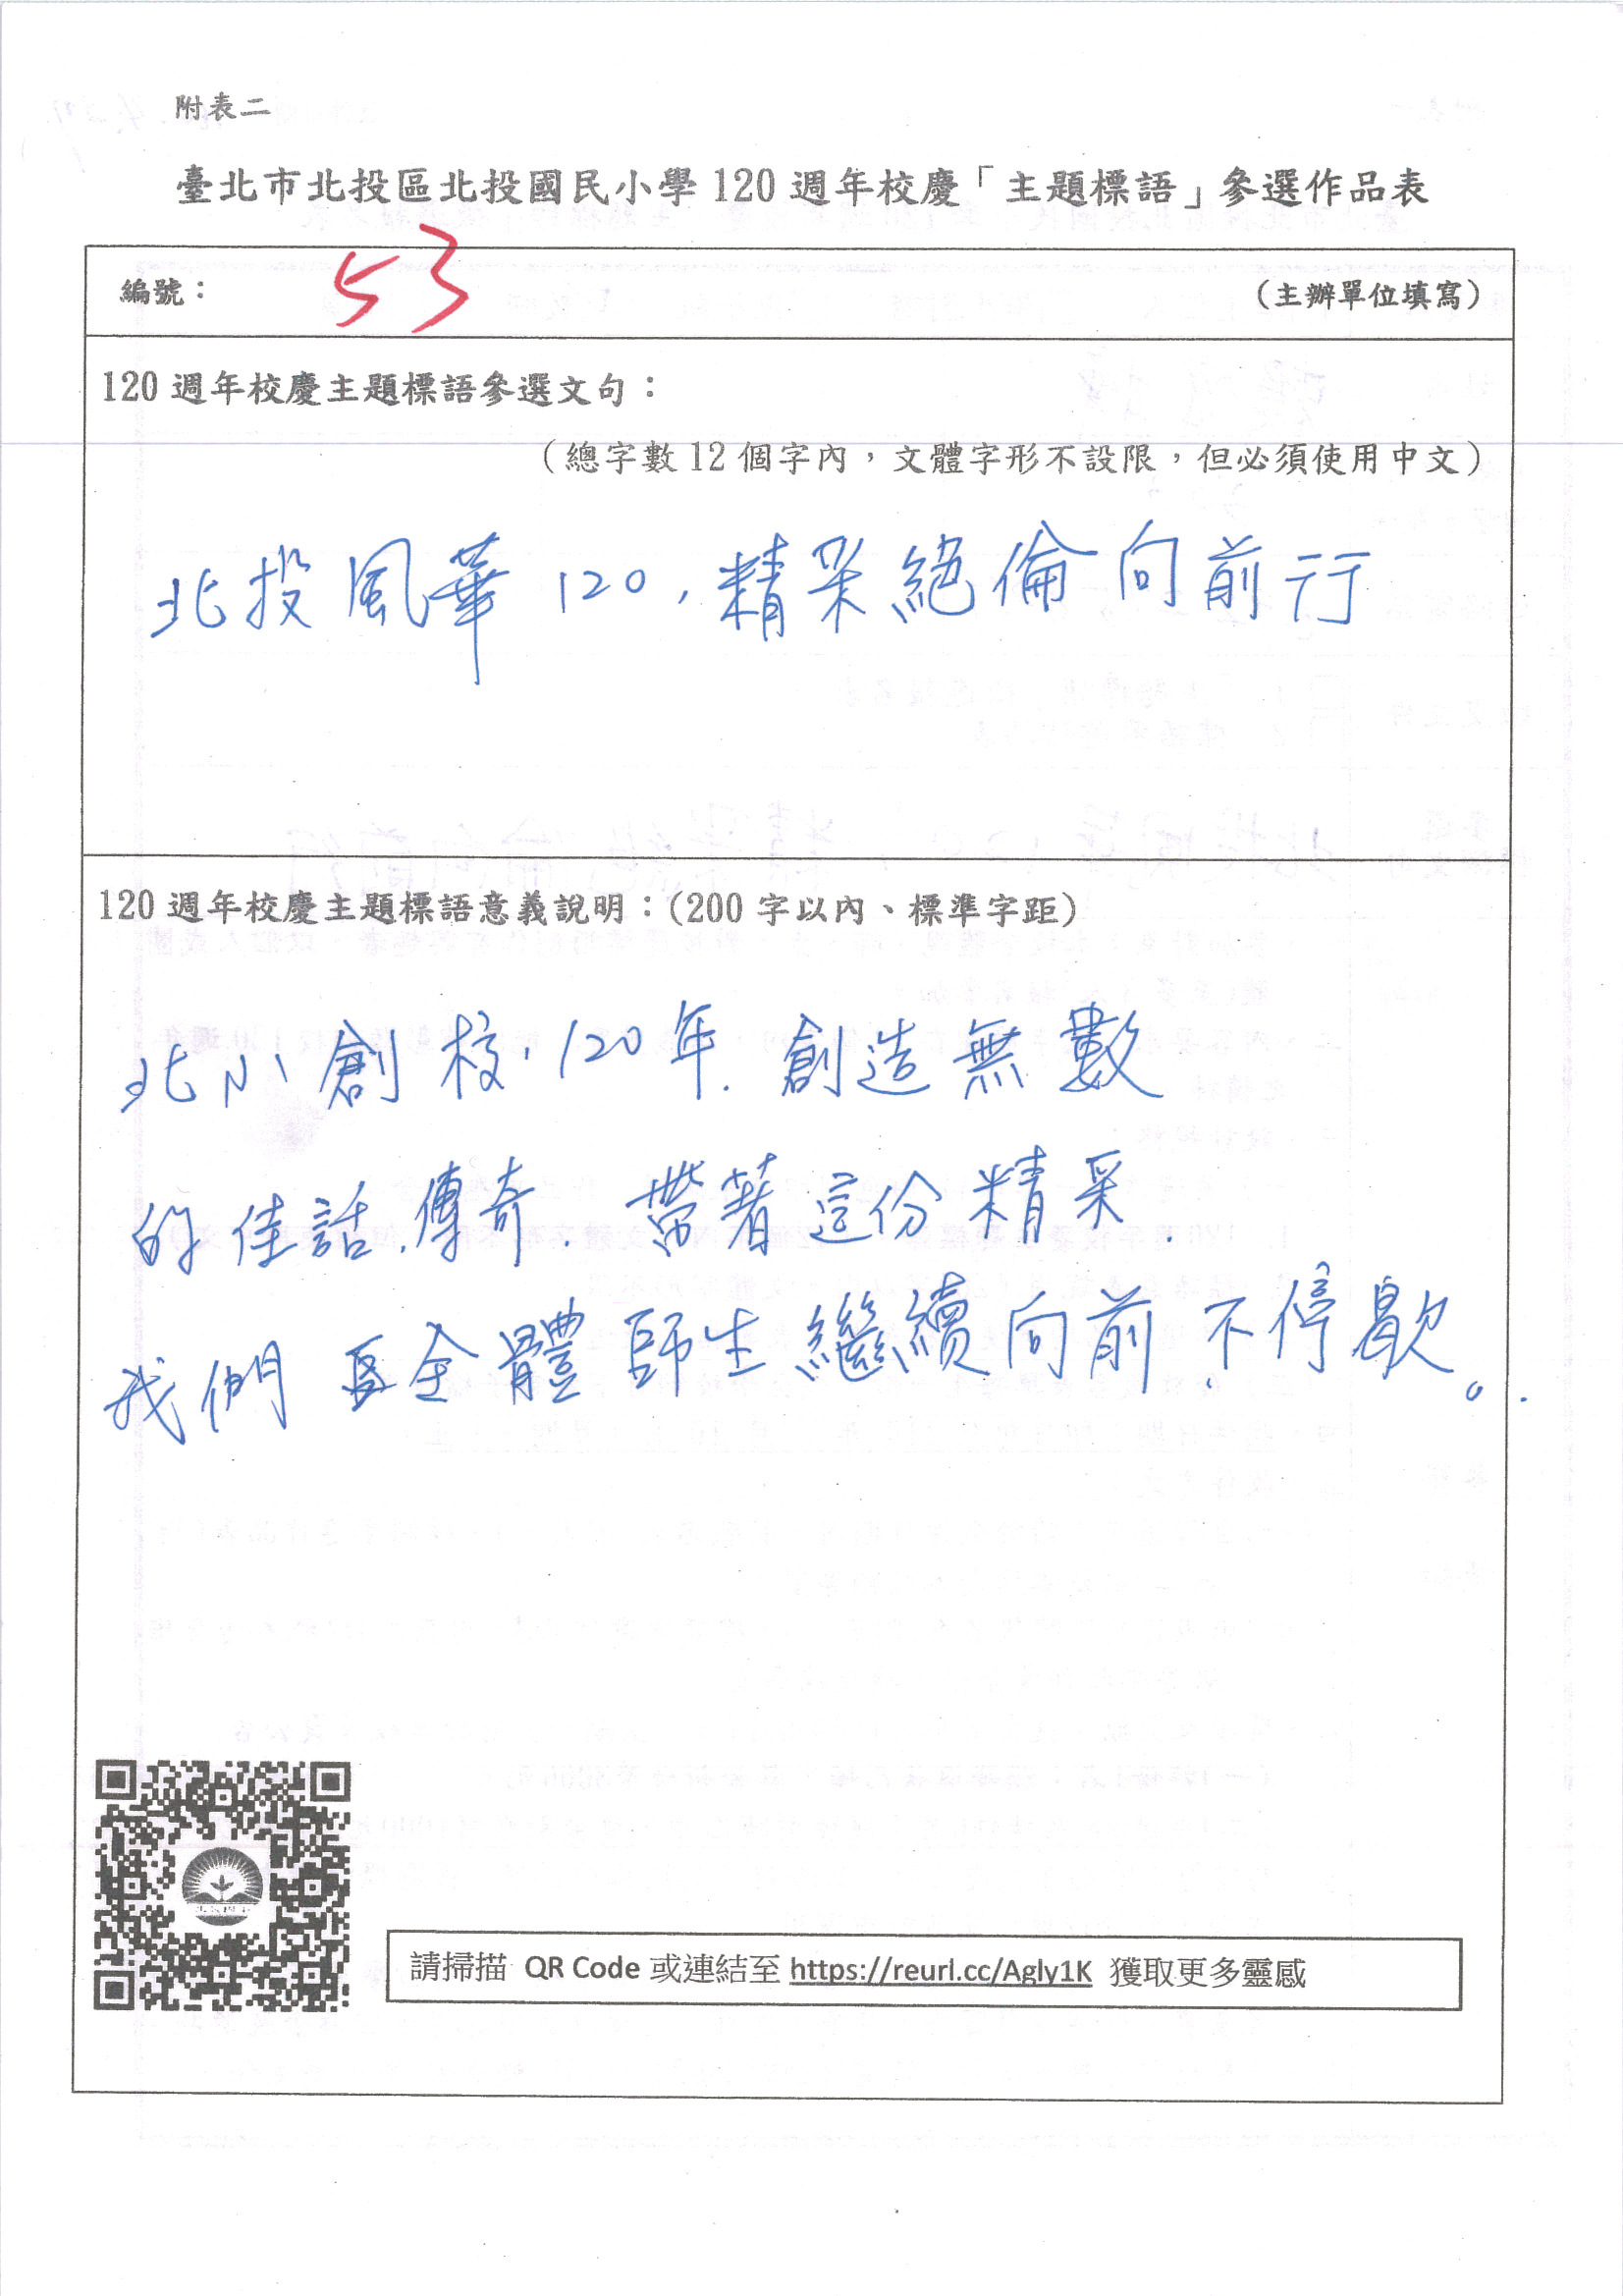 附表二
臺北市北投區北投國民小學 120 週年校慶「主題標語」參選作品表
編號： 53 （主辦單位填寫）
120 週年校慶主題標語參選文句：
（總字數 12 個字內，文體字形不設限，但必須使用中文）
北投風華 120，精采絕倫向前行
120 週年校慶主題標語意義說明：(200 字以內、標準字距)
北小創校，120年．創造無數
的佳話．傳奇．帶著這份精采．
我們 全體師生繼續向前．不停歇。
請掃描 QR Code 或連結至 https://reurl.cc/Agly1K 獲取更多靈感